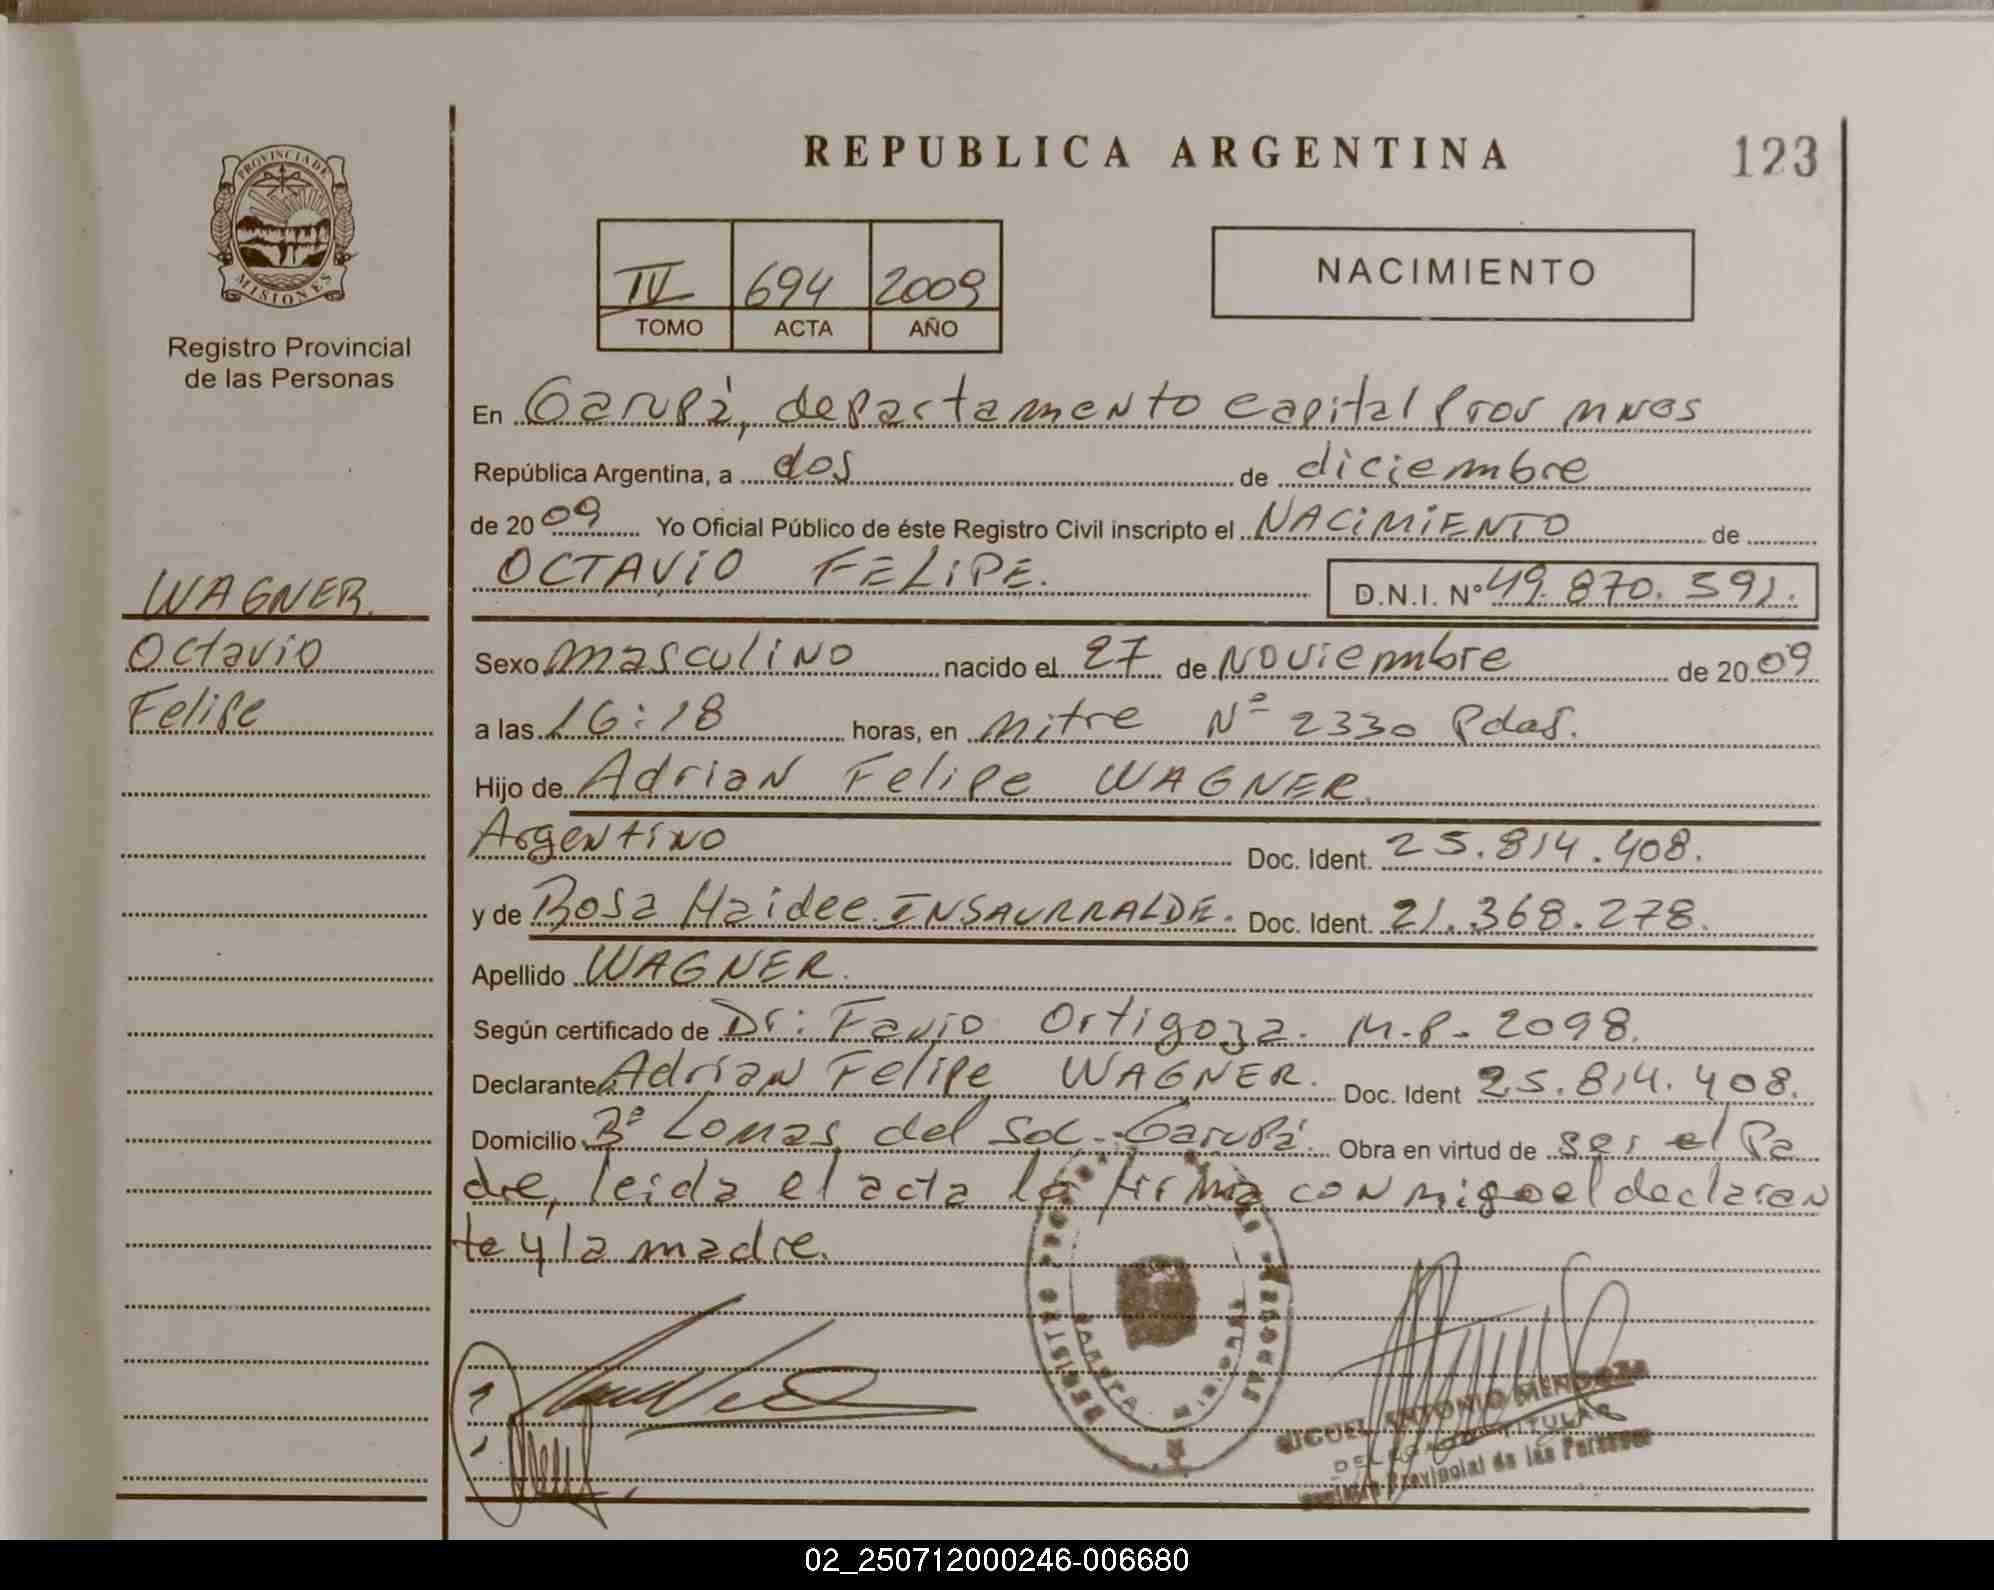 REPUBLICA ARGENTINA
123
PROVINCIA DE
MISIONES
Registro Provincial
de las Personas
IV 694 2009
TOMO ACTA AÑO
NACIMIENTO
En Garupá, departamento capital Prov mnes
República Argentina, a dos de diciembre
de 2009 Yo Oficial Público de éste Registro Civil inscripto el NACIMIENTO de
OCTAVIO FELIPE. D.N.I. Nº 49.870.591.
WAGNER.
Octavio
Felipe
Sexo masculino nacido el 27 de noviembre de 2009
a las 16:18 horas, en mitre Nº 2330 Pdas.
Hijo de Adrian Felipe WAGNER.
Argentino Doc. Ident. 25.814.408.
y de Rosa Haidee INSAURRALDE. Doc. Ident. 21.368.278.
Apellido WAGNER.
Según certificado de Dr: Favio Ortigoza. M.P. 2098.
Declarante Adrian Felipe WAGNER. Doc. Ident 25.814.408.
Domicilio Bº Lomas del Sol - Garupá. Obra en virtud de ser el Pa
dre, leida el acta la firma conmigo el declaran
te y la madre.
MIGUEL ANTONIO MENDOZA
DELEGADO TITULAR
Registro Provincial de las Personas
02_250712000246-006680